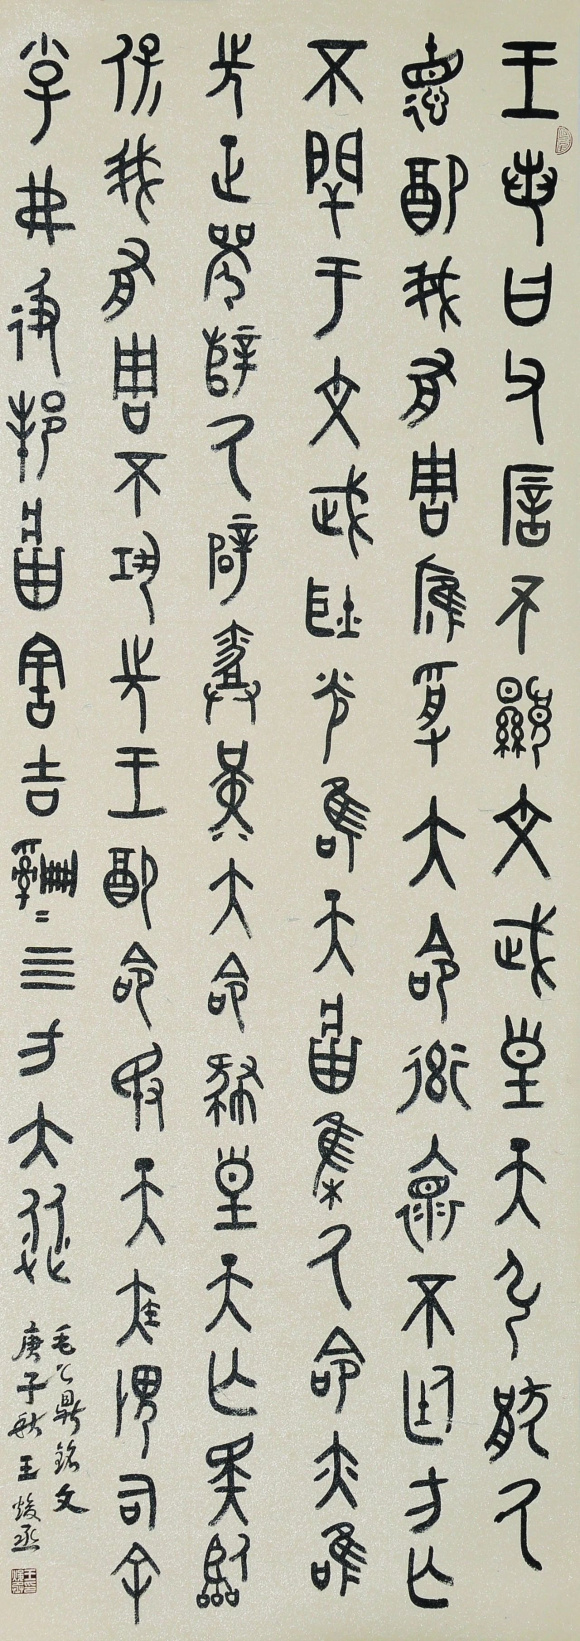 王若曰父厝不顯文武皇天弘猒氒
德配我有周膺受大命率懷不廷方亡
不閈于文武耿光唯天將集氒命亦唯
先正襄辥氒辟勞堇大命肄皇天亡斁臨
保我有周不巩先王配命敃天疾畏司余
小子弗彶邦將害吉四方大從
毛公鼎銘文
庚子秋王焌丞